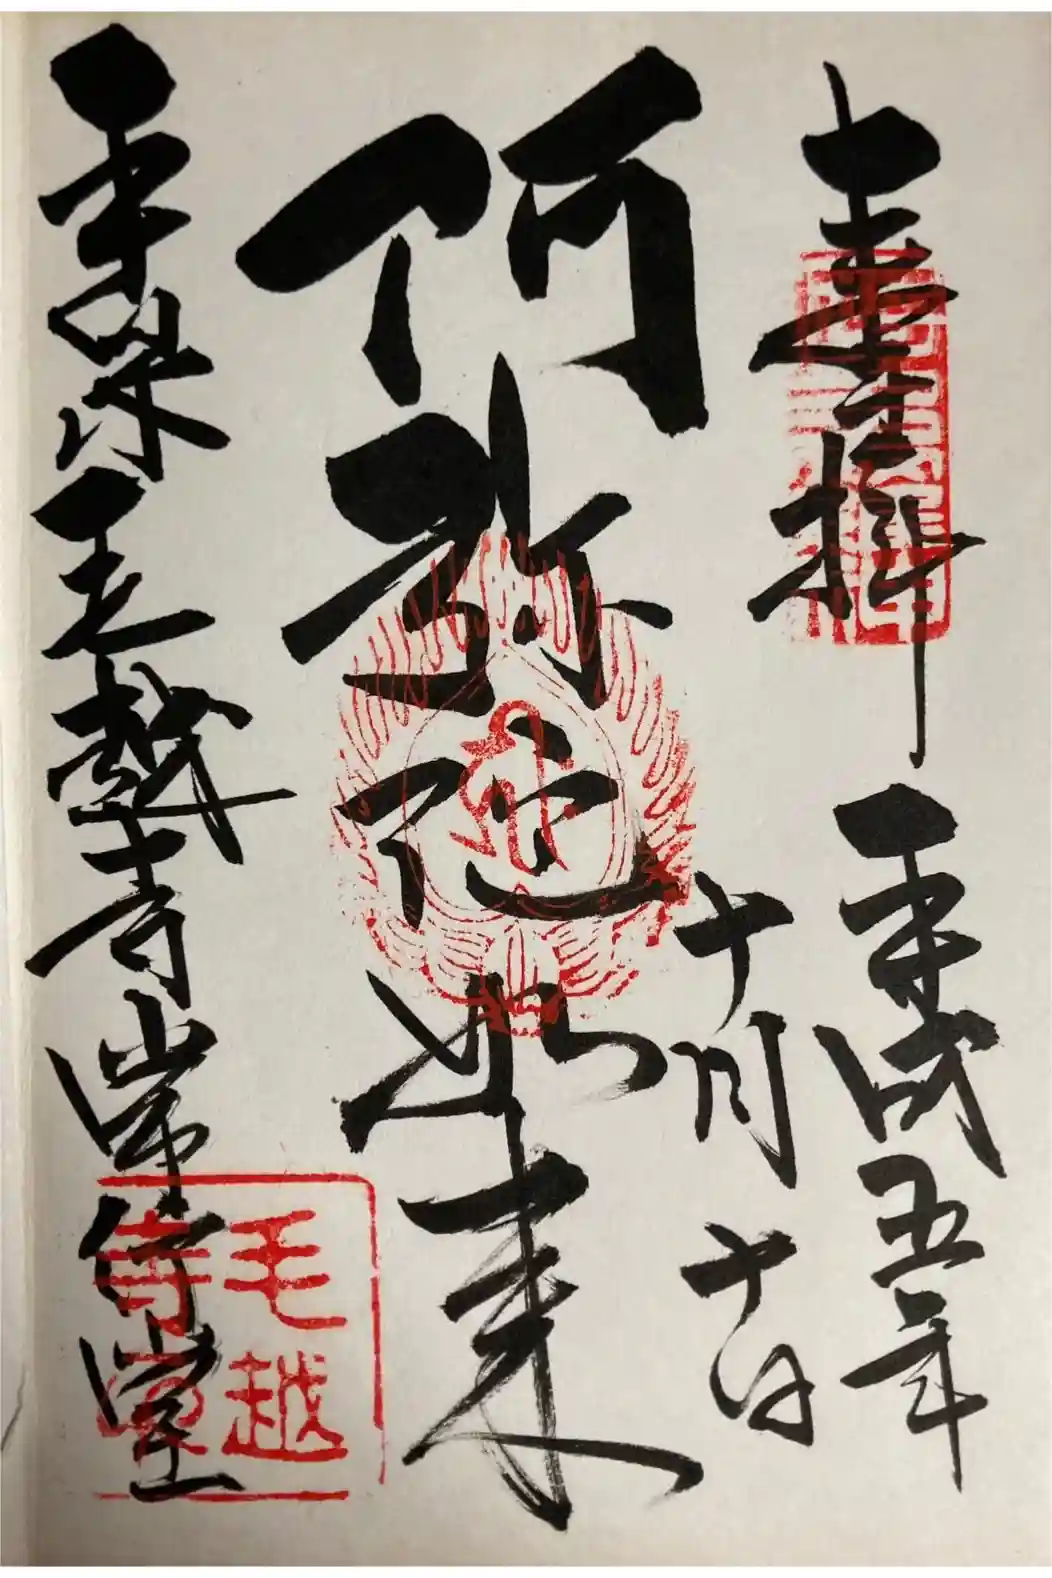 奉拝
平成五年
十月十日
阿弥陀如来
平泉毛越寺常行堂
毛越
寺